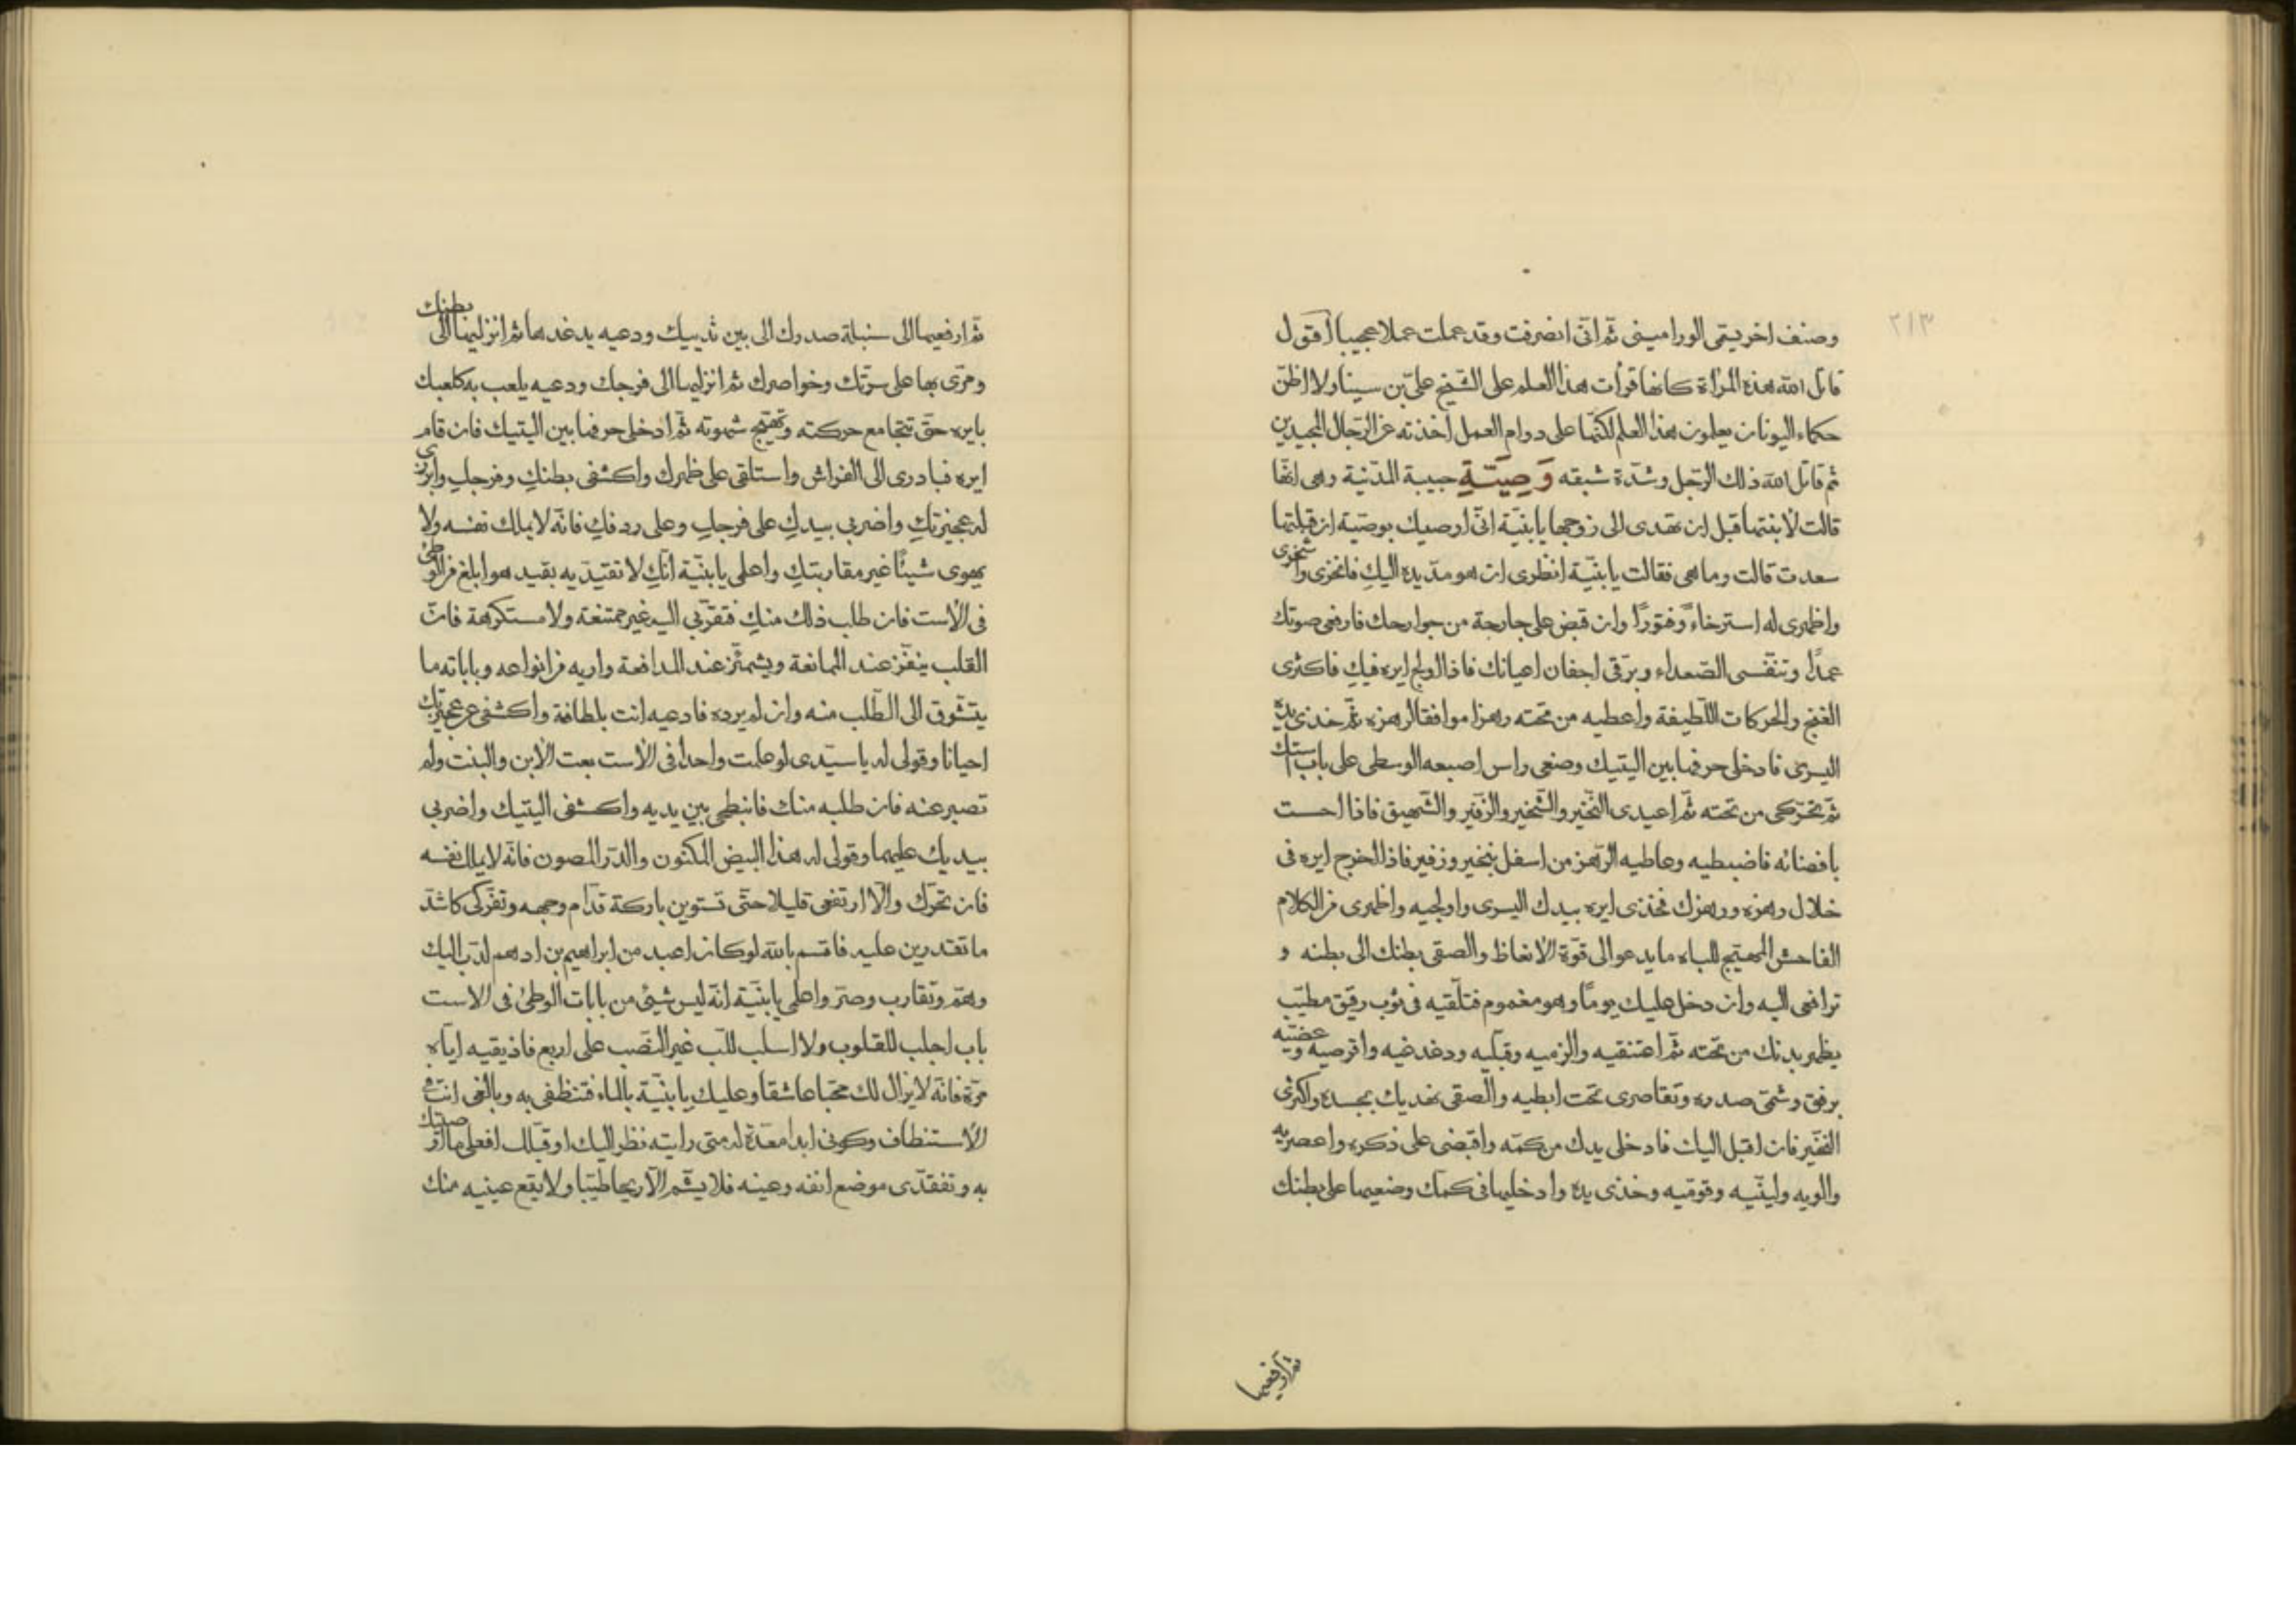 ٢١٣
وصنف اخر يسمى الوراميني ثم انّى انصرفت وقد عملت عملا عجيبا اقول
قاتل الله هذه المرأة كانها قرأت هذا العلم على الشيخ علىّ بن سينا ولا اظنّ
حكماء اليونان يعلمون هذا العلم لكنّها على دوام العمل اخذته عن الرّجال المجيدين
ثم قاتل الله ذلك الرّجل وشدّة شبقه وَصِيَّـةِ حبيبة المدنيّة وهى انّها
قالت لابنتها قبل ان تهدى الى زوجها يا بنيّة انّى اوصيك بوصيّة ان قبلتها
سعدت قالت وما هى فقالت يا بنيّة انظرى ان هو مدّ يده اليكِ فانخرى واشخرى
واظهرى له استرخاءً وفتورًا وان قبض على جارحة من جوارحك فارفعى صوتك
عمدًا وتنفّسى الصّعداء وبرّقى اجفان اعيانك فاذا اولج ايره فيكِ فاكثرى
الغنج والحركات اللّطيفة واعطيه من تحته رهزا موافقا لرهزه ثمّ خذى يده
اليسرى فادخلى حرفها بين اليتيك وضعى راس اصبعه الوسطى على باب استك
ثم تحرّكى من تحته ثم اعيدى النّخير والشّخير والزّفير والشّهيق فاذا احست
بافضائه فاضبطيه وعاطيه الرّهز من اسفل بنخير وزفير فاذا اخرج ايره فى
خلال رهزه ورهزك فخذى ايره بيدك اليسرى واولجيه واظهرى من الكلام
الفاحش المهيّج للباه ما يدعو الى قوّة الانعاظ والصقى بطنك الى بطنه و
ترافعى اليه وان دخل عليك يومًا وهو مغموم فتلقّيه فى ثوب رقيق مطيّب
يظهر بدنك من تحته ثم اعتنقيه والزميه وقبّليه ودغدغيه واقرصيه وعضّيه
برفق وشمّى صدره وتقاصرى تحت ابطيه والصقى نهديك بجسده واكثرى
النّخير فان اقبل اليك فادخلى يدك من كمّه واقبضى على ذكره واعصريه
والويه وليّنيه وقوّميه وخذى يده وادخليها فى كمّك وضعيها على بطنك
ثم ارفعيها
ثم ارفعيها الى سنبلة صدرك الى بين ثدييك ودعيه يدغدغها ثم انزليها الى بطنك
ومرّى بها على سرّتك وخواصرك ثم انزليها الى فرجك ودعيه يلعب به كلعبك
بايره حتّى تتجامع حركته وتهيّج شهوته ثم ادخلى حرفها بين اليتيك فان قام
ايره فبادرى الى الفراش واستلقى على ظهرك واكشفى بطنكِ وفرجكِ وابرزى
له عجيزتكِ واضربى بيدكِ على فرجكِ وعلى ردفكِ فانّه لا يملك نفسه ولا
يهوى شيئًا غير مقاربتكِ واعلمى يا بنيّة انّكِ لا تقيّديه بقيد هو ابلغ من الوطئ
فى الاست فان طلب ذلك منكِ فتقرّبى اليه غير ممتنعة ولا مستكرهة فانّ
القلب ينفر عند الممانعة ويشمئزّ عند المدافعة واريه من انواعه وباباته ما
يتشوق الى الطّلب منه وان لم يرده فادعيه انت بلطافة واكشفى عن عجيزتك
احيانا وقولى له يا سيّدى لو علمت واحدا فى الاست بعت الابن والبنت ولم
تصبر عنه فان طلبه منك فانبطحى بين يديه واكشفى اليتيك واضربى
بيديك عليهما وقولى له هذا البيض المكنون والدّرّ المصون فانّه لا يملك نفسه
فان تحرّك والّا ارتفعى قليلا حتّى تستوين باركة قدّام وجهه وتفرّكى كاشدّ
ما تقدرين عليه فاقسم بالله لو كان اعبد من ابراهيم بن ادهم لدبّ اليك
وهمّ وتقارب وصرّ واعلمى يا بنيّة انّه ليس شيئ من بابات الوطئ فى الاست
باب اجلب للقلوب ولا اسلب للّب غير النّصب على اربع فاذيقيه ايّاه
مرّة فانّه لا يزال لك محبّا عاشقا وعليك يا بنيّة بالماء فتنظفى به وبالغى انت فى
الاستنظاف وكونى ابدا معدّة له متى رايته نظر اليك او قبّلك افعلى ما اوصيتك
به وتفقدّى موضع انفه وعينه فلا يشم الّا ريحا طيّبا ولا يقع عينيه منك